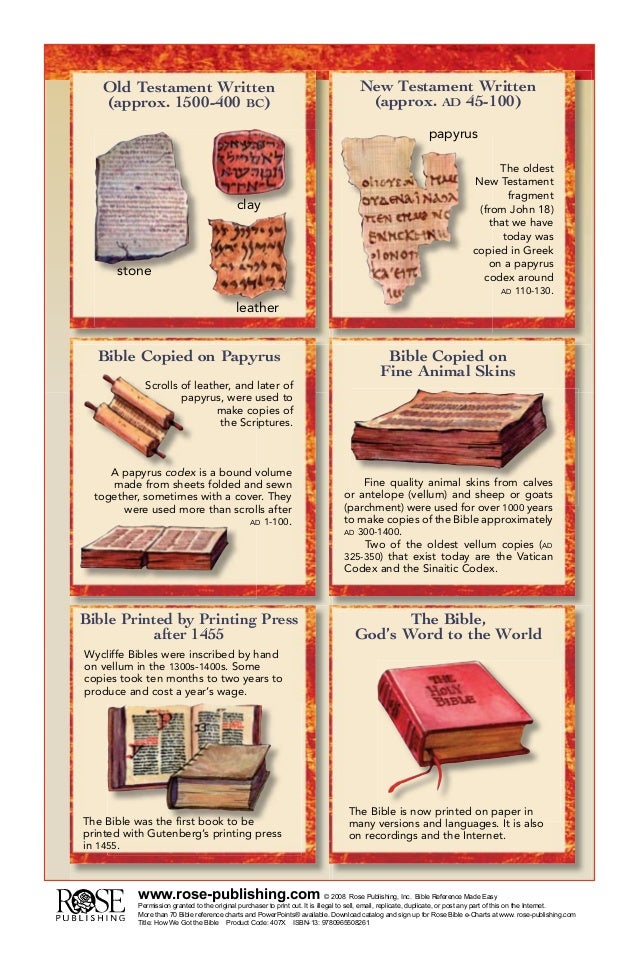 Old Testament Written
(approx. 1500-400 BC)
stone
clay
leather
New Testament Written
(approx. AD 45-100)
papyrus
The oldest
New Testament
fragment
(from John 18)
that we have
today was
copied in Greek
on a papyrus
codex around
AD 110-130.
Bible Copied on Papyrus
Scrolls of leather, and later of
papyrus, were used to
make copies of
the Scriptures.
A papyrus codex is a bound volume
made from sheets folded and sewn
together, sometimes with a cover. They
were used more than scrolls after
AD 1-100.
Bible Copied on
Fine Animal Skins
Fine quality animal skins from calves
or antelope (vellum) and sheep or goats
(parchment) were used for over 1000 years
to make copies of the Bible approximately
AD 300-1400.
Two of the oldest vellum copies (AD
325-350) that exist today are the Vatican
Codex and the Sinaitic Codex.
Bible Printed by Printing Press
after 1455
Wycliffe Bibles were inscribed by hand
on vellum in the 1300s-1400s. Some
copies took ten months to two years to
produce and cost a year's wage.
The Bible was the first book to be
printed with Gutenberg's printing press
in 1455.
The Bible,
God's Word to the World
THE
HOLY
BIBLE
The Bible is now printed on paper in
many versions and languages. It is also
on recordings and the Internet.
ROSE
PUBLISHING
www.rose-publishing.com © 2008 Rose Publishing, Inc. Bible Reference Made Easy
Permission granted to the original purchaser to print out. It is illegal to sell, email, replicate, duplicate, or post any part of this on the Internet.
More than 70 Bible reference charts and PowerPoints® available. Download catalog and sign up for Rose Bible e-Charts at www. rose-publishing.com
Title: How We Got the Bible Product Code: 407X ISBN-13: 9780965508261